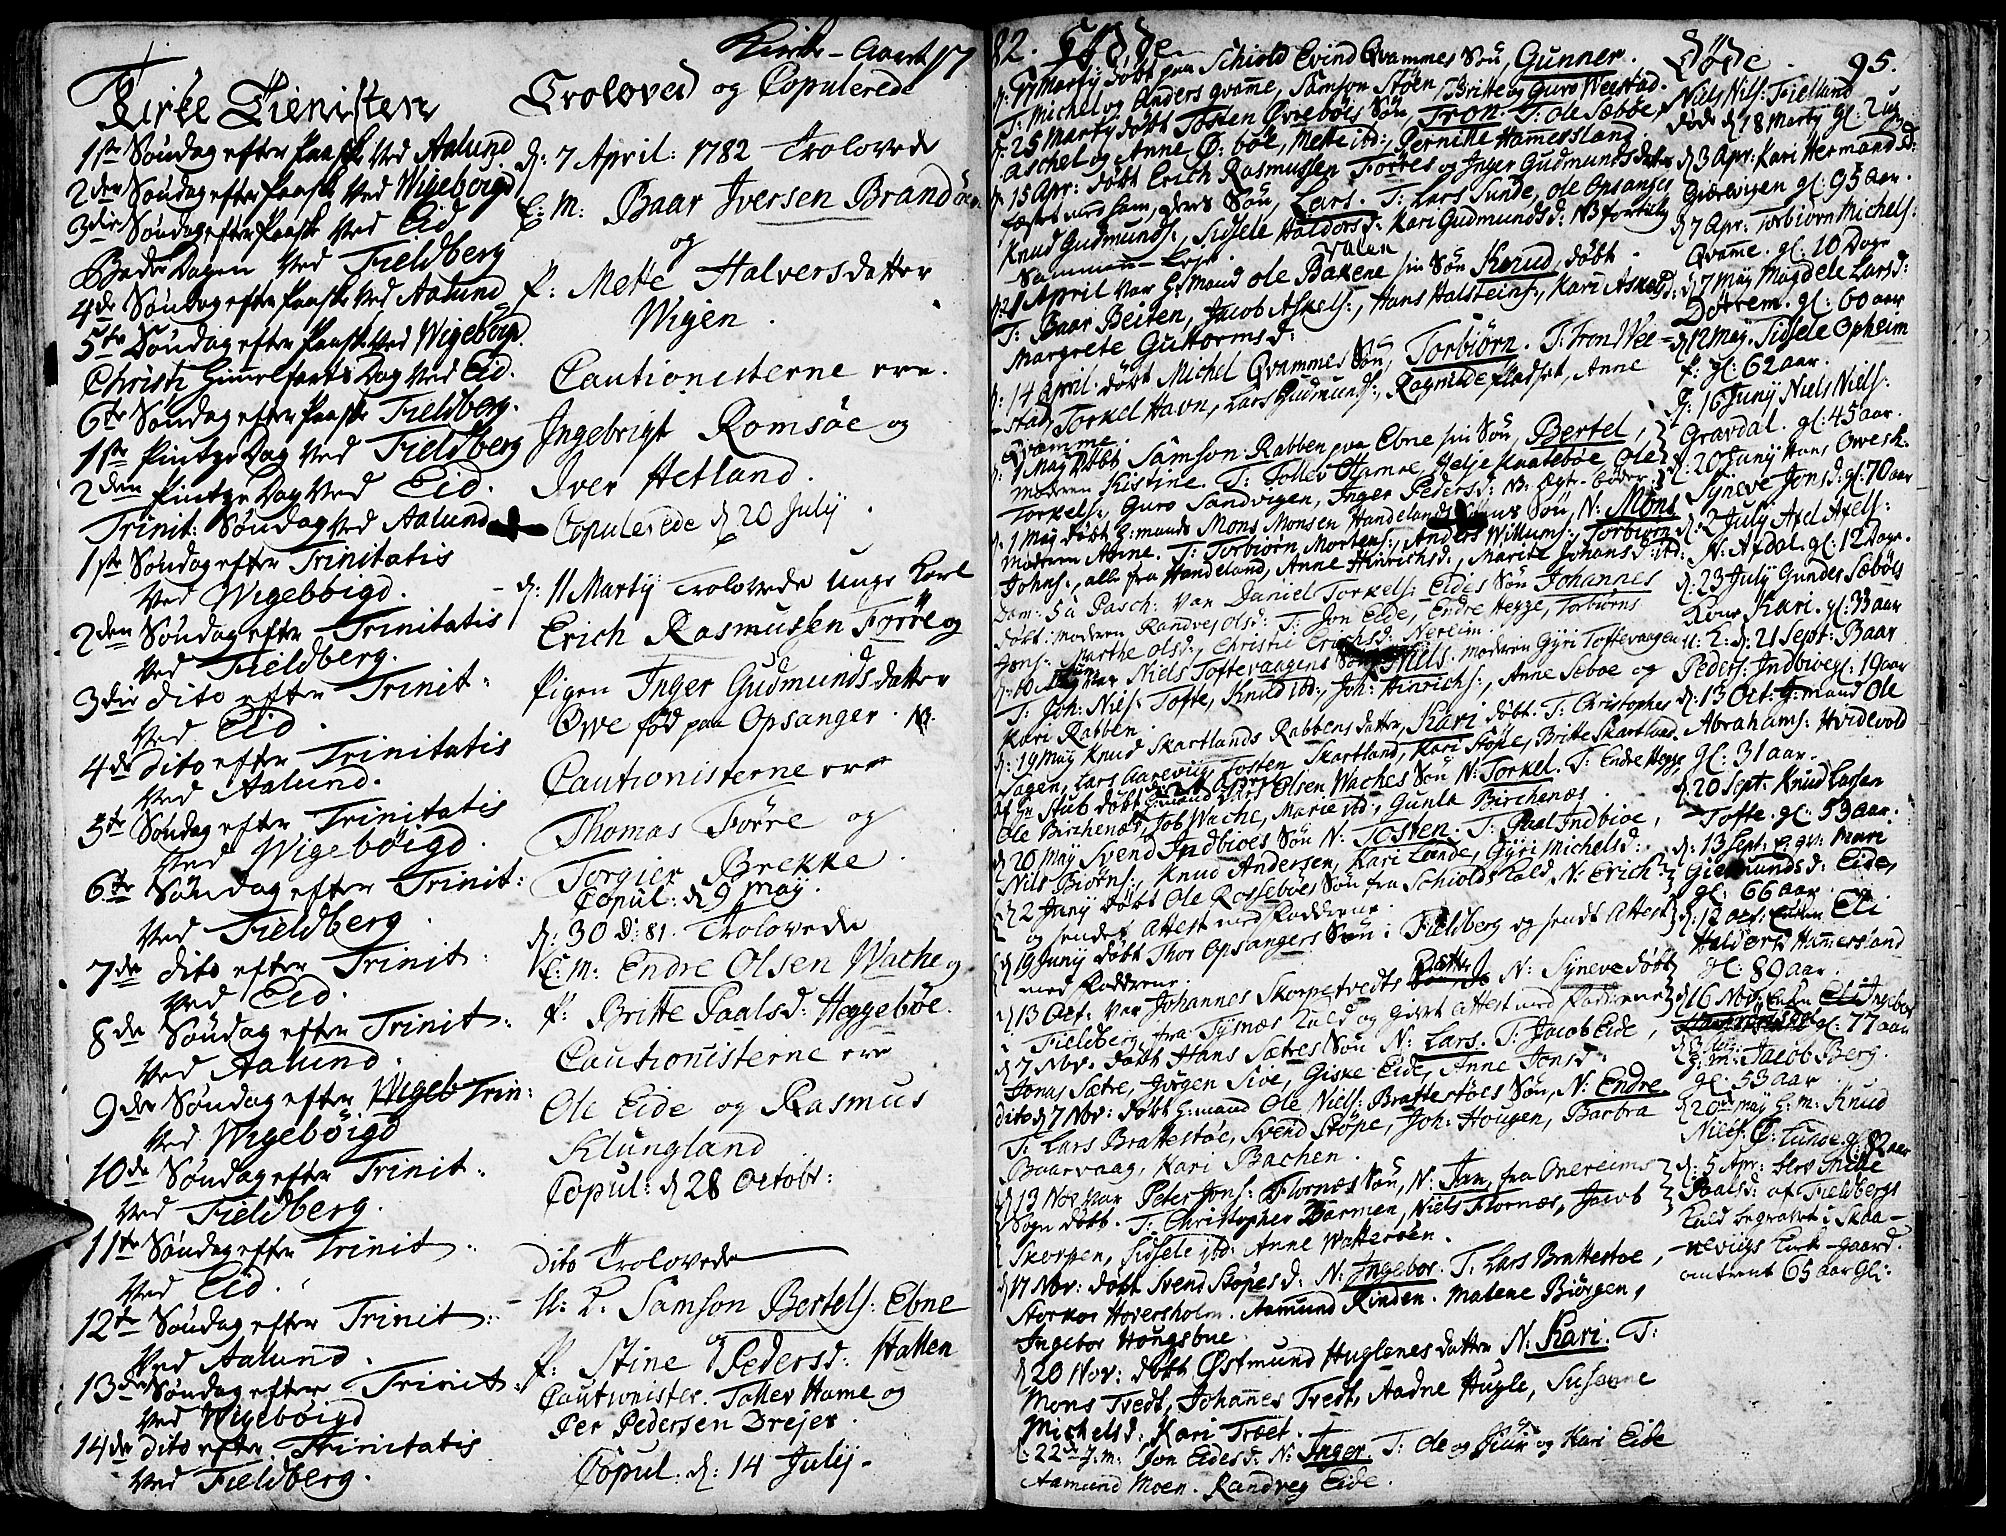 Kirke-Aaret 17
Kirke Tienisten
1ste Søndag efter Paaske ved Aalund
2den Søndag efter Paaske ved Wigebøigd
3die Søndag efter Paaske ved Eid
Bededagen ved Fieldberg
4de Søndag efter Paaske ved Aalund
5te Søndag efter Paaske ved Wigebøigd.
Christi Himmelfarts Dag ved Eid.
6te Søndag efter Paaske Fieldberg.
1ste Pintze Dag ved Fieldberg
2den Pintze Dag ved Eid.
Trinit: Søndag ved Aalund
1ste Søndag efter Trinitatis
ved Wigebøigd.
2den Søndag efter Trinitatis
ved Fieldberg.
3die dito efter Trinit:
ved Eid.
4de dito efter Trinitatis
ved Aalund.
5te Søndag efter Trinitatis
ved Wigebøigd.
6te Søndag efter Trinit:
ved Fieldberg.
7de dito efter Trinit:
ved Eid.
8de Søndag efter Trinit:
ved Aalund.
9de Søndag efter Wigeb Trin:
ved Wigebøigd
10de Søndag efter Trinit:
ved Fieldberg.
11te Søndag efter Trinit:
ved Eid.
12te Søndag efter Trinit:
ved Aalund.
13de Søndag efter Trinit:
ved Wigebøigd
14de dito efter Trinitatis
ved Fieldberg.
Troloved og Copulerede
d: 7 April: 1782 Trolovede
E: M: Baar Iversen Brandøen
og
P: Mette Halversdatter
Wigen.
Cautionisterne ere.
Ingebrigt Romsøe og
Iver Hetland.
Copulerede d 20 Julij.
d: 11 Martij Trolovede unge Karl
Erich Rasmussen Førre og
Pigen Inger Gudmundsdatter
Øwe fød paa Opsanger. N.
Cautionisterne ere
Thomas Førre og
Torgier Brekke.
Copul: d 9 May.
d: 30 D: 81. Trolovede
E: m: Endre Olsen Wache og
P: Britte Paalsd: Heggebøe.
Cautionisterne ere
Ole Eide og Rasmus
Klungland
Copul: d 28 Octobr:
Dito Trolovede
U: K. Samson Bertels: Ebne
og
P: Stine Pedersd: Hatten
Cautionister. Tollev Hame og
Per Pedersen Drejer.
Copul: d: 14 Julij.
82. Fødde
d: 17 Martij døbt paa Schiold Evind Qvammes Søn, Gunner.
T: Michel og Anders Qvame, Samson Støen, Britte og Guro Weestad.
d: 25 Martij døbt Tosten Øvrebøes Søn, Tron. T: Ole Sæbbøe,
Aschel og Anne Ø: bøe, Mette ibd: Pernille Hamersland.
d: 15 Apr: døbt Erich Rasmussen Førres og Inger Gudmundsdatter
deres Søn, Lars. T: Lars Sunde, Ole Opsanger
Knud Gudmunds:, Sidsele Haldorsd: Kari Gudmundsd:
d: 1 April var H:mand Ole Bakene sin Søn Knud døbt.
T: Baar Beiten, Jacob Askels:, Hans Halsteins:, Kari Askelsd:
Margrete Guttormsd:
d: 14 April døbt Michel Qvammes Søn, Torbiørn. T: Tron Wee-
stad, Torkel Havn, Lars Gudmunds:, Ragnilde Pladset, Anne
Qvamme.
d: 1 May døbt Samson Rabben paa Ebne sin Søn, Bertel,
Moderen Kistine. T: Tollev Hamne, Helje Knatebøe, Ole
Torkels:, Guro Sandvigen, Inger Pedersd:
d: 1 May døbt H:mands Mons Monsen Handelands Søn, N: Mons
Moderen Anne. T: Torbiørn Mortens:, Anders Willums:, Torbiørn
Johns:, alle fra Handeland, Anne Hinrichsd:, Marite Johansd: ibd:
Dom: 5ta Pasch: var Daniel Torkels: Eides Søn Johannes
døbt: Moderen Randvei Olsd: T: Jon Eide, Endre Hegge, Torbiørn
Jons: Marthe Olsd:, Christie Erichsd: Nereim.
var Niels Toftevaagens Søn Niels. Moderen Gyri Toftevaagen
T: Joh: Niels: Tofte, Knud ibd:, Joh: Hinrichs:, Anne Seboe og
Kari Rabben
d: 19 May Knud Skartlands Rabbens datter, Kari døbt. T: Christopher
Sagen, Lars Aarevigs, Tosten Skartland, Kari Støpe, Britte Skartland.
Olsen Waches Søn N: Torkel. T: Endre Hegge,
Ole Birchenæs, Job Wache, Marie ibd:, Gunla Birchenæs.
d 20 May Svend Indbioes Søn N: Tosten. T: Paal Indbioe,
Nils Biørns:, Knud Andersen, Kari Lande, Gyri Michelsd:
d 2 Junij døbt Ole Rossebøes Søn fra Schiolds Kald, N: Erich
og sender Attest med Fadderne.
d 19 Junij døbt Thor Opsangers Søn i Fieldberg og sendt Attest
med Fadderne.
d 13 Oct: var Johannes Skorpetvedts datter N: Syneve døbt
i Fieldberg fra Tysnæs Kald og giort Attest med Fadderne
d 7 Nov: døbt Hans Sætres Søn N: Lars. T: Jacob Eide,
Jonas Sætre, Jørgen Sive, Giske Eide, Anne Jonsd:
dito d 7 Nov: døbt H:mand Ole Niels: Brattestøes Søn, N: Endre
T: Lars Brattestøe, Svend Støpe, Joh: Hougen, Barbra
Baarvaag, Kari Bachen.
d 13 Nov var Peter Jons: Flornæs Søn, N: Jan, fra Onereims
Sogn døbt. T: Christopher Barmen, Niels Flornæs, Jacob
Skorpen, Sidsele ibd: Anne Watterøen.
d 17 Nov: døbt Svend Støpes d: N: Ingebor. T: Lars Brattestoe,
Storkor Hoversholm. Aamund Rinden. Malene Biörgen,
Ingebor Hougsbue.
d 20 Nov: døbt Østmund Huglenes datter N: Kari. T:
Mons Tvedt, Johannes Tvedt, Aadne Hugle, Susanne
Michelsd: Kari Træet.
d: 22de H:m: Jon Eides d: N: Inger. T: Ole og og Kari Eide
Aamund Moen. Randveg Eide.
Døde. 95.
Niels Nils: Fielland
døde d 18 Martij gl: 2 ug
d 3 Apr: Kari Hermandsd:
Giørvigen gl: 95 aar.
d 7 Apr: Torbiørn Michels:
Qvame. gl: 10 Dage
d: 7 May Magdele Larsd:
gl: 60 aar
d 12 May. Sidsele Opheim
P: gl: 62 aar.
d: 16 Junij Niels Niels:
Gravdal. gl: 45 aar.
d: 20 Junij Hans
Syneve Jonsd: gl: 70 aar
d: 2 Julij Axel Axels:
N: Axdal. gl: 12 Dage.
d: 23 Julij Gundes Sæbøes
Kone Kari. gl: 33 aar
d: 21 Sept: Baar
Peders: Indbioe gl: 19 aar
d: 13 Oct: H:mand Ole
Abrahams: Hvidevold
gl: 31 aar.
d: 20 Sept: Knud Larsen
Tofte. gl: 53 aar.
d: 13 Sept: Mari
Giermundsd: Eide,
gl: 66 aar.
d: 12 Oct: Enken Eli
Haldors: Hammersland
gl: 80 aar.
d 16 Nov: Enken Ingebor
gl: 77 aar
E: m: Jacob Berg.
gl: 53 aar
d 20de May H: m: Knud
Niels: Ø: Tunge. gl: 82 aar
d: 5 Apr:
Paalsd: af Fieldbergs
Kald begravet i Skaa-
nevigs Kirke-gaard.
omtrent 65 aar gl: